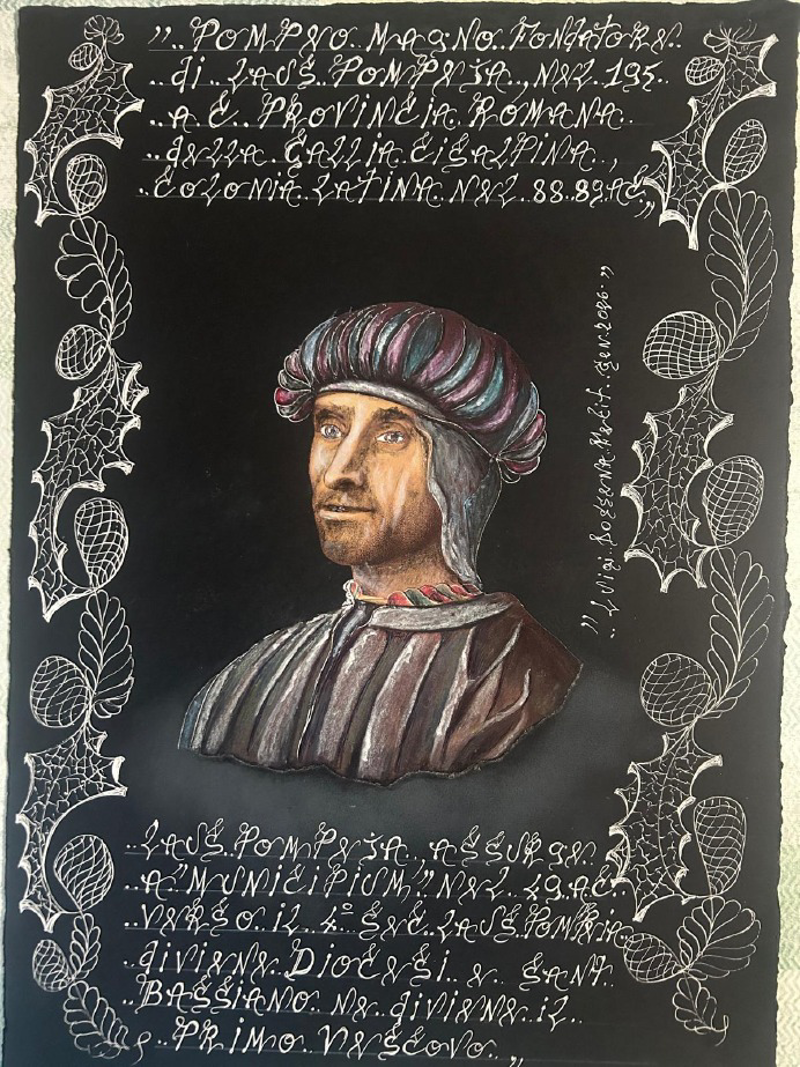 ,,..POMPEO..MAGNO..FONdATORE..
..di..LAUS..POMPEJA..,NEL..195..
..A C..PROVINCIA..ROMANA..
..dELLA..GALLIA..CISALPINA..,
..COLONIA..LATINA..NEL..88.89 AC.,,
,,..LUigi..MAtit..gEN.2026..,,
..LAUS..POMPEJA..,ASSURgE..
..A"MUNICIPIUM"NEL..49.AC..
..VERSO..IL..4º..SEC..LAUS.POMPEIA
..diVIENE..DIOCESi..E..SANt..
..BASSIANO..NE..diViENE..iL..
..PRiMO..VESCOVO..,,